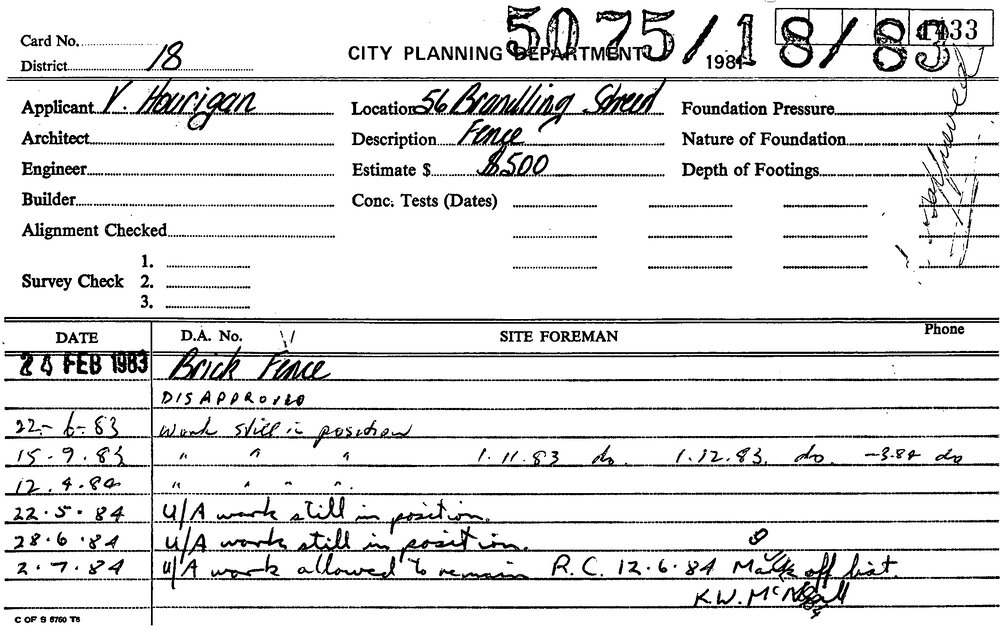 5075/18/83
1433
Card No.
District 18
CITY PLANNING DEPARTMENT 198
Applicant V. Hourigan Location 56 Brandling Street Foundation Pressure
Architect Description Fence Nature of Foundation
Engineer Estimate $ $500 Depth of Footings
Builder Conc. Tests (Dates)
Alignment Checked
Survey Check 1.
2.
3.
DATE D.A. No. SITE FOREMAN Phone
24 FEB 1983 Brick Fence
DISAPPROVED
22-6-83 work still in position
15.9.83 " " " 1.11.83 do. 1.12.83. do. -3.84 do
12.4.84 " " " ".
22.5.84 U/A work still in position.
28.6.84 U/A work still in position.
2.7.84 U/A work allowed to remain R.C. 12.6.84 Mark off list.
K.W.
C OF S 6760 T6